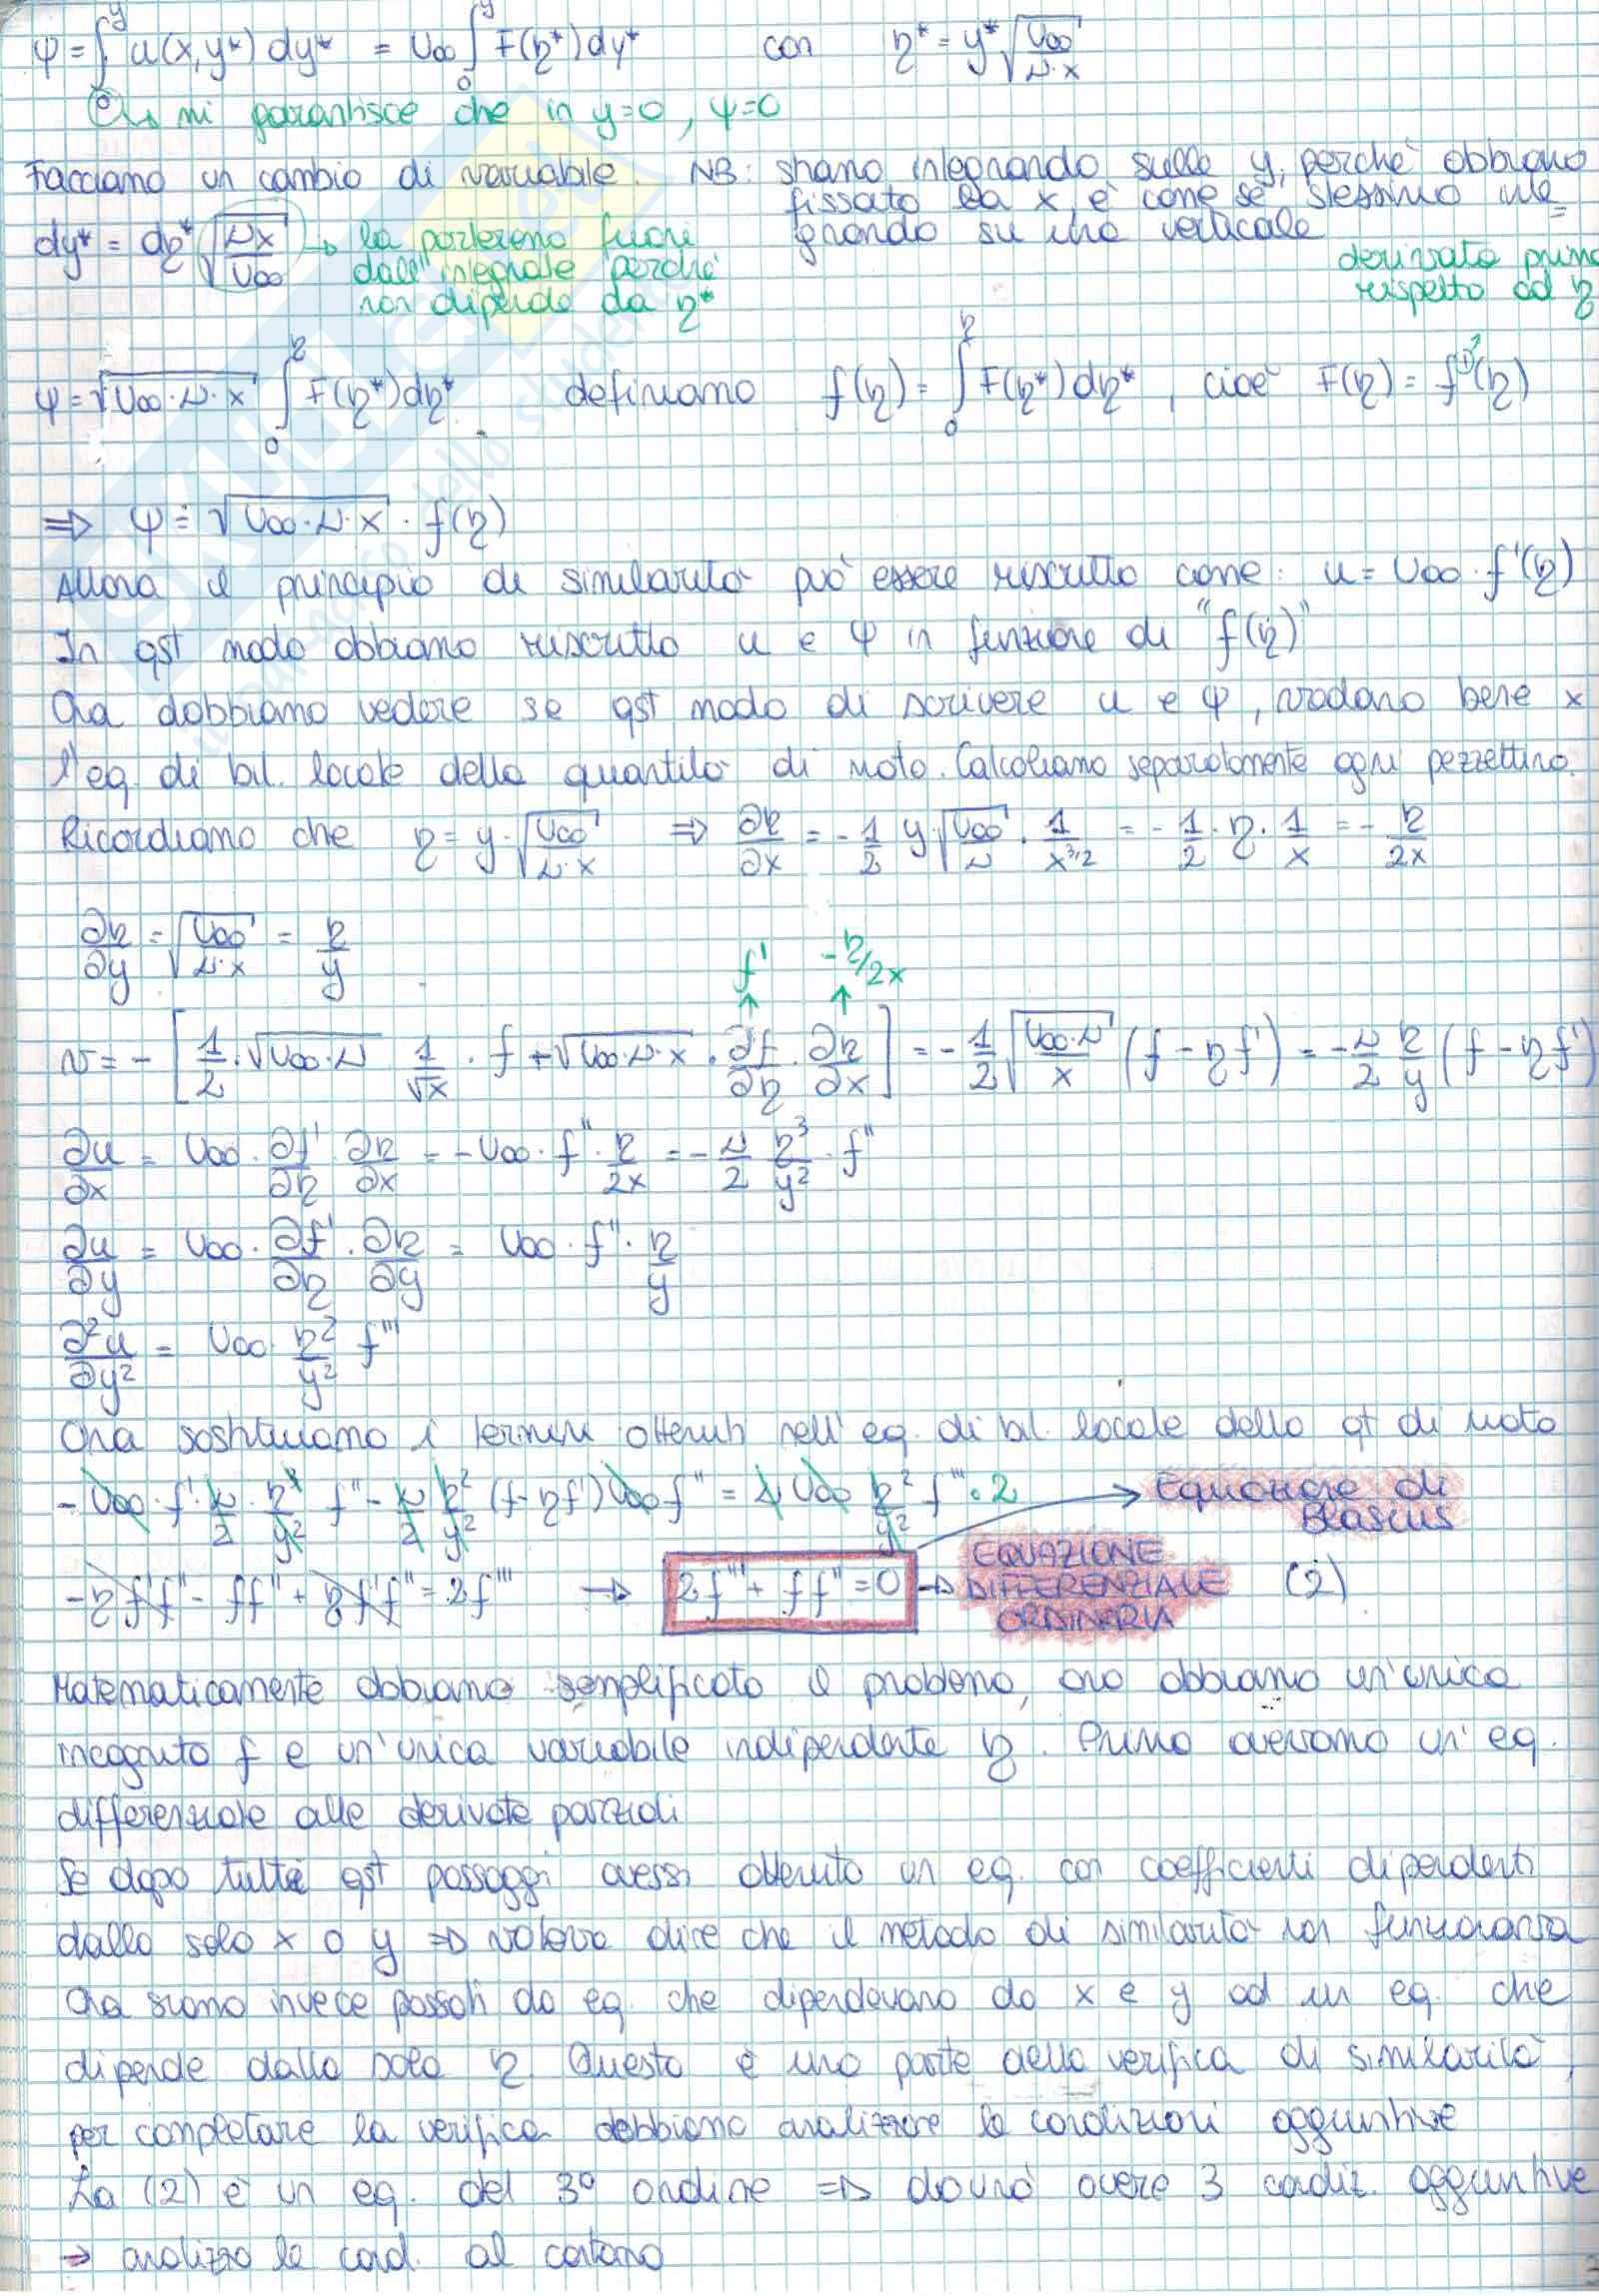 ψ = ∫₀^y u(x,y*) dy* = U∞ ∫₀^y F(η*) dy* con η* = y* √(U∞/(ν·x))
↳ mi garantisce che in y=0, ψ=0
Facciamo un cambio di variabile. NB: stiamo integrando sulla y, perché abbiamo
fissato la x, è come se stessimo inte=
grando su una verticale
dy* = dη* √(νx/U∞) → la porteremo fuori
dall'integrale perché
non dipende da η*
derivata prima
rispetto ad η
ψ = √(U∞·ν·x) ∫₀^η F(η*) dη* definiamo f(η) = ∫₀^η F(η*) dη*, cioè F(η) = f'(η)
⇒ ψ = √(U∞·ν·x) · f(η)
Allora il principio di similarità può essere riscritto come: u = U∞·f'(η)
In qst modo abbiamo riscritto u e ψ in funzione di "f(η)"
Ora dobbiamo vedere se qst modo di scrivere u e ψ, vadano bene x
l'eq. di bil. locale della quantità di moto. Calcoliamo separatamente ogni pezzettino.
Ricordiamo che η = y·√(U∞/(ν·x)) ⇒ ∂η/∂x = -1/2 y √(U∞/ν) · 1/x^(3/2) = -1/2 · η · 1/x = -η/2x
∂η/∂y = √(U∞/(ν·x)) = η/y
f' -η/2x
v = -[1/2·√(U∞·ν) 1/√x · f + √(U∞·ν·x) · ∂f/∂η · ∂η/∂x] = -1/2 √(U∞·ν/x) (f - ηf') = -ν/2 η/y (f - ηf')
∂u/∂x = U∞ · ∂f'/∂η · ∂η/∂x = -U∞ · f'' · η/2x = -ν/2 η³/y² · f''
∂u/∂y = U∞ · ∂f'/∂η · ∂η/∂y = U∞ · f'' · η/y
∂²u/∂y² = U∞ · η²/y² f'''
Ora sostituiamo i termini ottenuti nell'eq. di bil. locale della qt di moto
-U∞·f'·ν/2·η³/y² f'' - ν/2 η²/y² (f-ηf') U∞ f'' = ν U∞ η²/y² f''' · 2 → Equazione di
Blasius
-ηf'f'' - ff'' + ηf'f'' = 2f''' → 2f''' + ff'' = 0 → EQUAZIONE
DIFFERENZIALE (2)
ORDINARIA
Matematicamente abbiamo semplificato il problema, ora abbiamo un'unica
incognita f e un'unica variabile indipendente η. Prima avevamo un'eq.
differenziale alle derivate parziali
Se dopo tutti qst passaggi avessi ottenuto un eq. con coefficienti dipendenti
dalla sola x o y ⇒ voleva dire che il metodo di similarità non funzionava
Ora siamo invece passati da eq. che dipendevano da x e y ad un eq. che
dipende dalla sola η. Questa è una parte della verifica di similarità,
per completare la verifica dobbiamo analizzare le condizioni aggiuntive
La (2) è un eq. del 3° ordine ⇒ dovrò avere 3 condiz. aggiuntive
→ analizzo le cond. al contorno